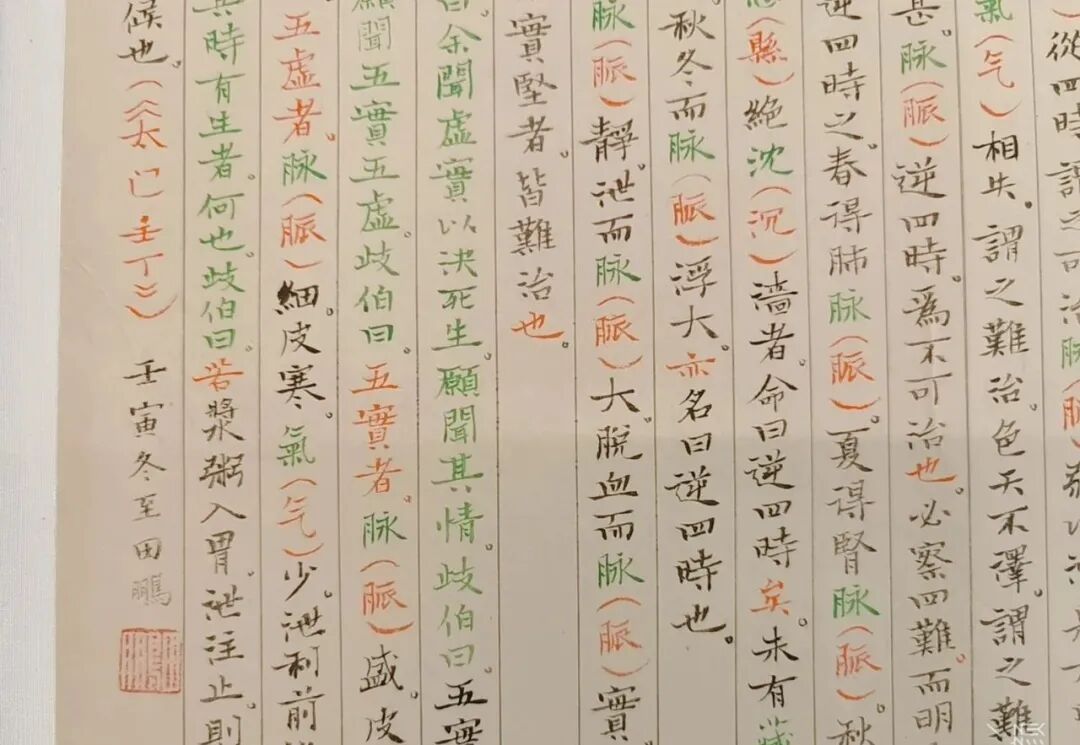 從四時謂之可治脉（脈）
氣（气）相失。謂之難治。色夭不澤。謂之難
甚。脉（脈）逆四時。爲不可治也。必察四難。而明
逆四時之春。得肺脉（脈）。夏得腎脉（脈）秋
（縣）絶沈（沉）濇者。命曰逆四時矣。未有藏
秋冬而脉（脈）浮大。亦名曰逆四時也。
脉（脈）靜。泄而脉（脈）大。脱血而脉（脈）實
實堅者。皆難治也。
曰。余聞虛實以決死生。願聞其情。歧伯曰。五實
願聞五實五虛。歧伯曰。五實者。脉（脈）盛。皮
五虛者。脉（脈）細。皮寒。氣（气）少。泄利前
其時有生者。何也。歧伯曰。若漿粥入胃。泄注止。則
候也。（《太 壬丁》） 壬寅冬至田鵬